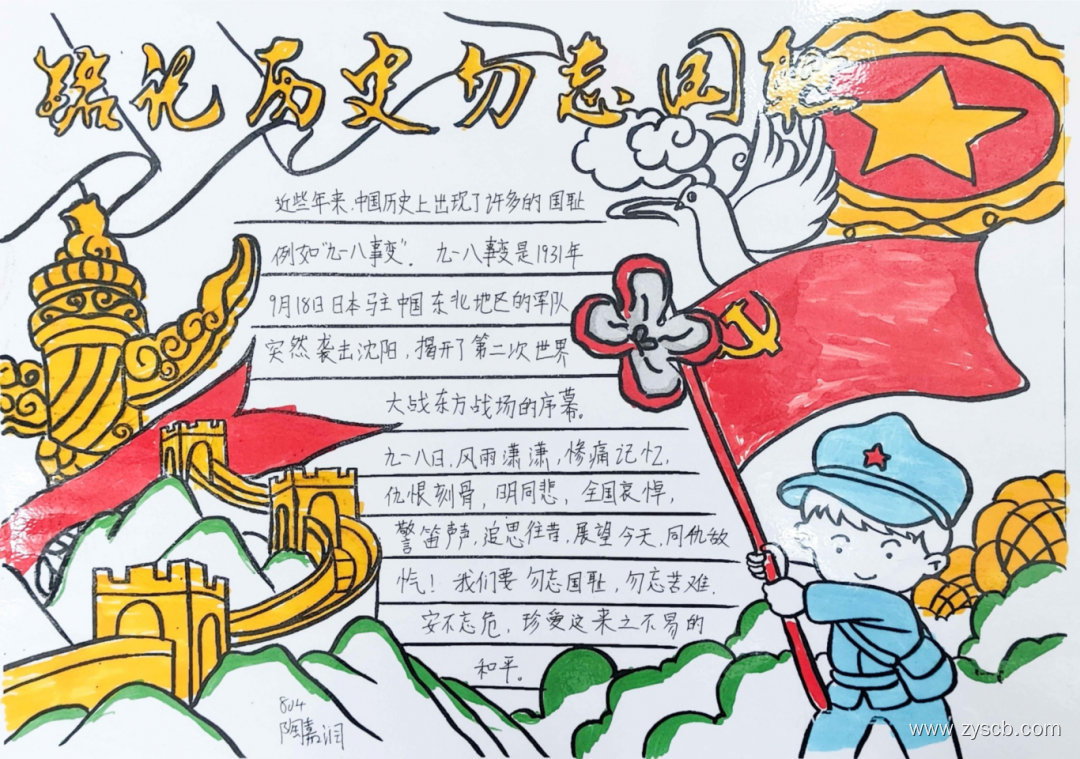 铭记历史勿忘国耻
近些年来,中国历史上出现了许多的国耻
例如"九一八事变"。九一八事变是1931年
9月18日日本驻中国东北地区的军队
突然袭击沈阳,揭开了第二次世界
大战东方战场的序幕。
九一八日,风雨潇潇,惨痛记忆,
仇恨刻骨,明同悲,全国哀悼,
警笛声声,追思往昔,展望今天,同仇敌
忾!我们要勿忘国耻,勿忘苦难.
安不忘危,珍爱这来之不易的
和平。
804
陶嘉润
www.zyscb.com